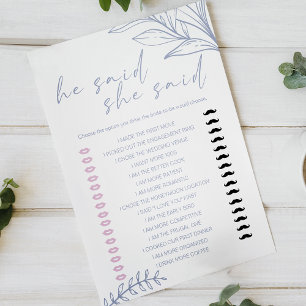 he said
she said
Choose the option you think the bride to be would choose.
I MADE THE FIRST MOVE
I PICKED OUT THE ENGAGEMENT RING
I CHOSE THE WEDDING VENUE
I WANT MORE KIDS
I AM THE BETTER COOK
I AM MORE PATIENT
I AM MORE ROMANTIC
I CHOSE THE HONEYMOON LOCATION
I SAID I LOVE YOU FIRST
I AM THE EARLY BIRD
I AM MORE COMPETITIVE
I AM THE FRUGAL ONE
I COOKED OUR FIRST DINNER
I AM MORE ORGANIZED
I DRINK MORE COFFEE